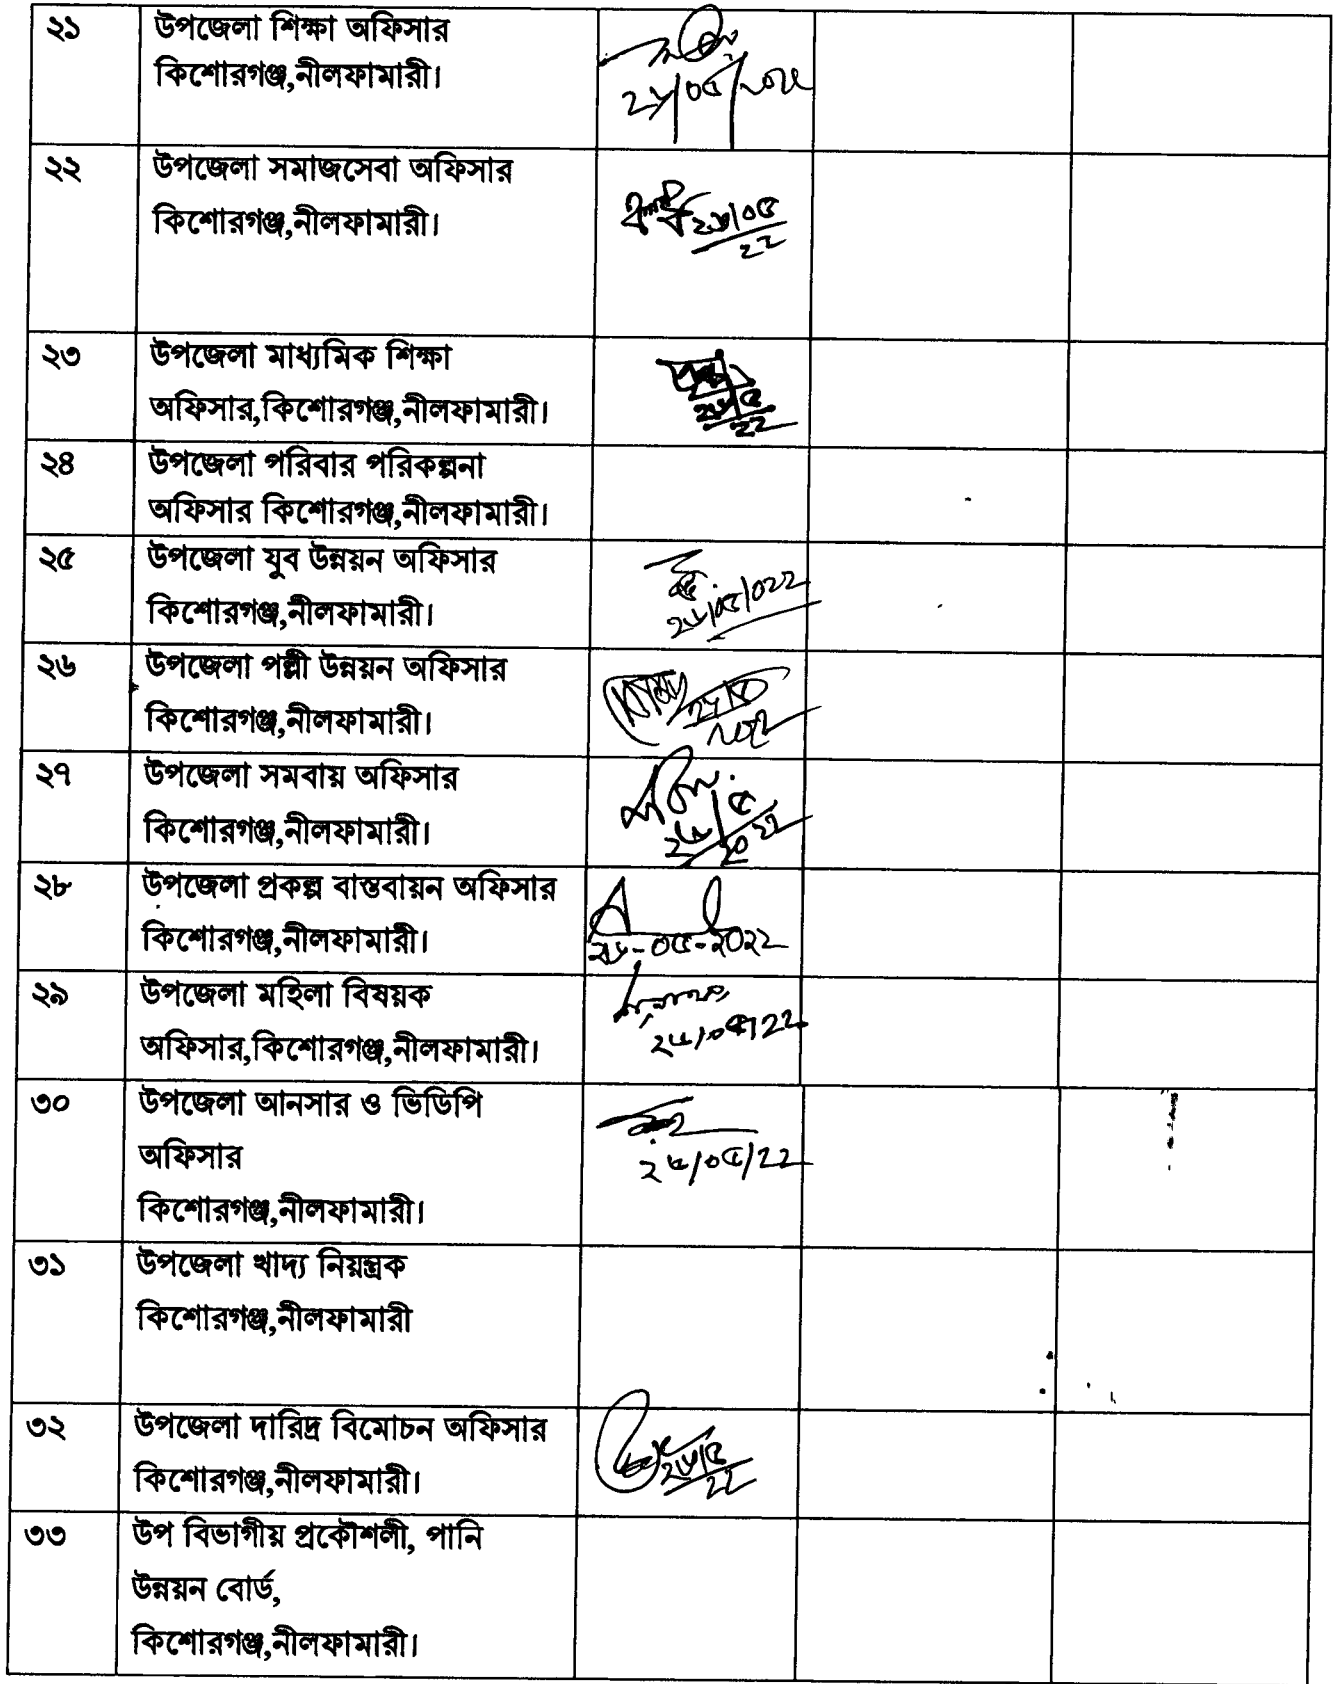 ২১
উপজেলা শিক্ষা অফিসার
কিশোরগঞ্জ,নীলফামারী।
২৬/০৫/২০২২
২২
উপজেলা সমাজসেবা অফিসার
কিশোরগঞ্জ,নীলফামারী।
২৬/০৫
২২
২৩
উপজেলা মাধ্যমিক শিক্ষা
অফিসার,কিশোরগঞ্জ,নীলফামারী।
২৬/৫
২২
২৪
উপজেলা পরিবার পরিকল্পনা
অফিসার কিশোরগঞ্জ,নীলফামারী।
২৫
উপজেলা যুব উন্নয়ন অফিসার
কিশোরগঞ্জ,নীলফামারী।
২৬/০৫/০২২
২৬
উপজেলা পল্লী উন্নয়ন অফিসার
কিশোরগঞ্জ,নীলফামারী।
২৬/৫
২০২২
২৭
উপজেলা সমবায় অফিসার
কিশোরগঞ্জ,নীলফামারী।
২৬/৫
২০২২
২৮
উপজেলা প্রকল্প বাস্তবায়ন অফিসার
কিশোরগঞ্জ,নীলফামারী।
২৬-০৫-২০২২
২৯
উপজেলা মহিলা বিষয়ক
অফিসার,কিশোরগঞ্জ,নীলফামারী।
২৬/০৫/২২
৩০
উপজেলা আনসার ও ভিডিপি
অফিসার
কিশোরগঞ্জ,নীলফামারী।
২৬/০৫/২২
৩১
উপজেলা খাদ্য নিয়ন্ত্রক
কিশোরগঞ্জ,নীলফামারী
৩২
উপজেলা দারিদ্র বিমোচন অফিসার
কিশোরগঞ্জ,নীলফামারী।
২৬/৫
২২
৩৩
উপ বিভাগীয় প্রকৌশলী, পানি
উন্নয়ন বোর্ড,
কিশোরগঞ্জ,নীলফামারী।